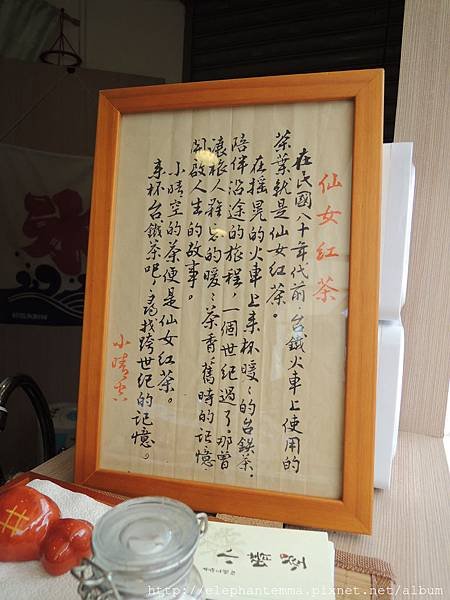 仙女紅茶
在民國八十年代前台鐵火車上使用的
茶葉就是仙女紅茶。
在搖晃的火車上來杯暖暖的台鐵茶，
陪伴沿途的旅程，一個世紀過了，那曾
讓旅人難忘的暖暖茶香，舊時的记憶
開啟人生的故事。
小晴空的茶便是仙女紅茶。
來杯台鐵茶吧，尋找跨世紀的记憶。
小晴空
http://elephantemma.pixnet.net/album